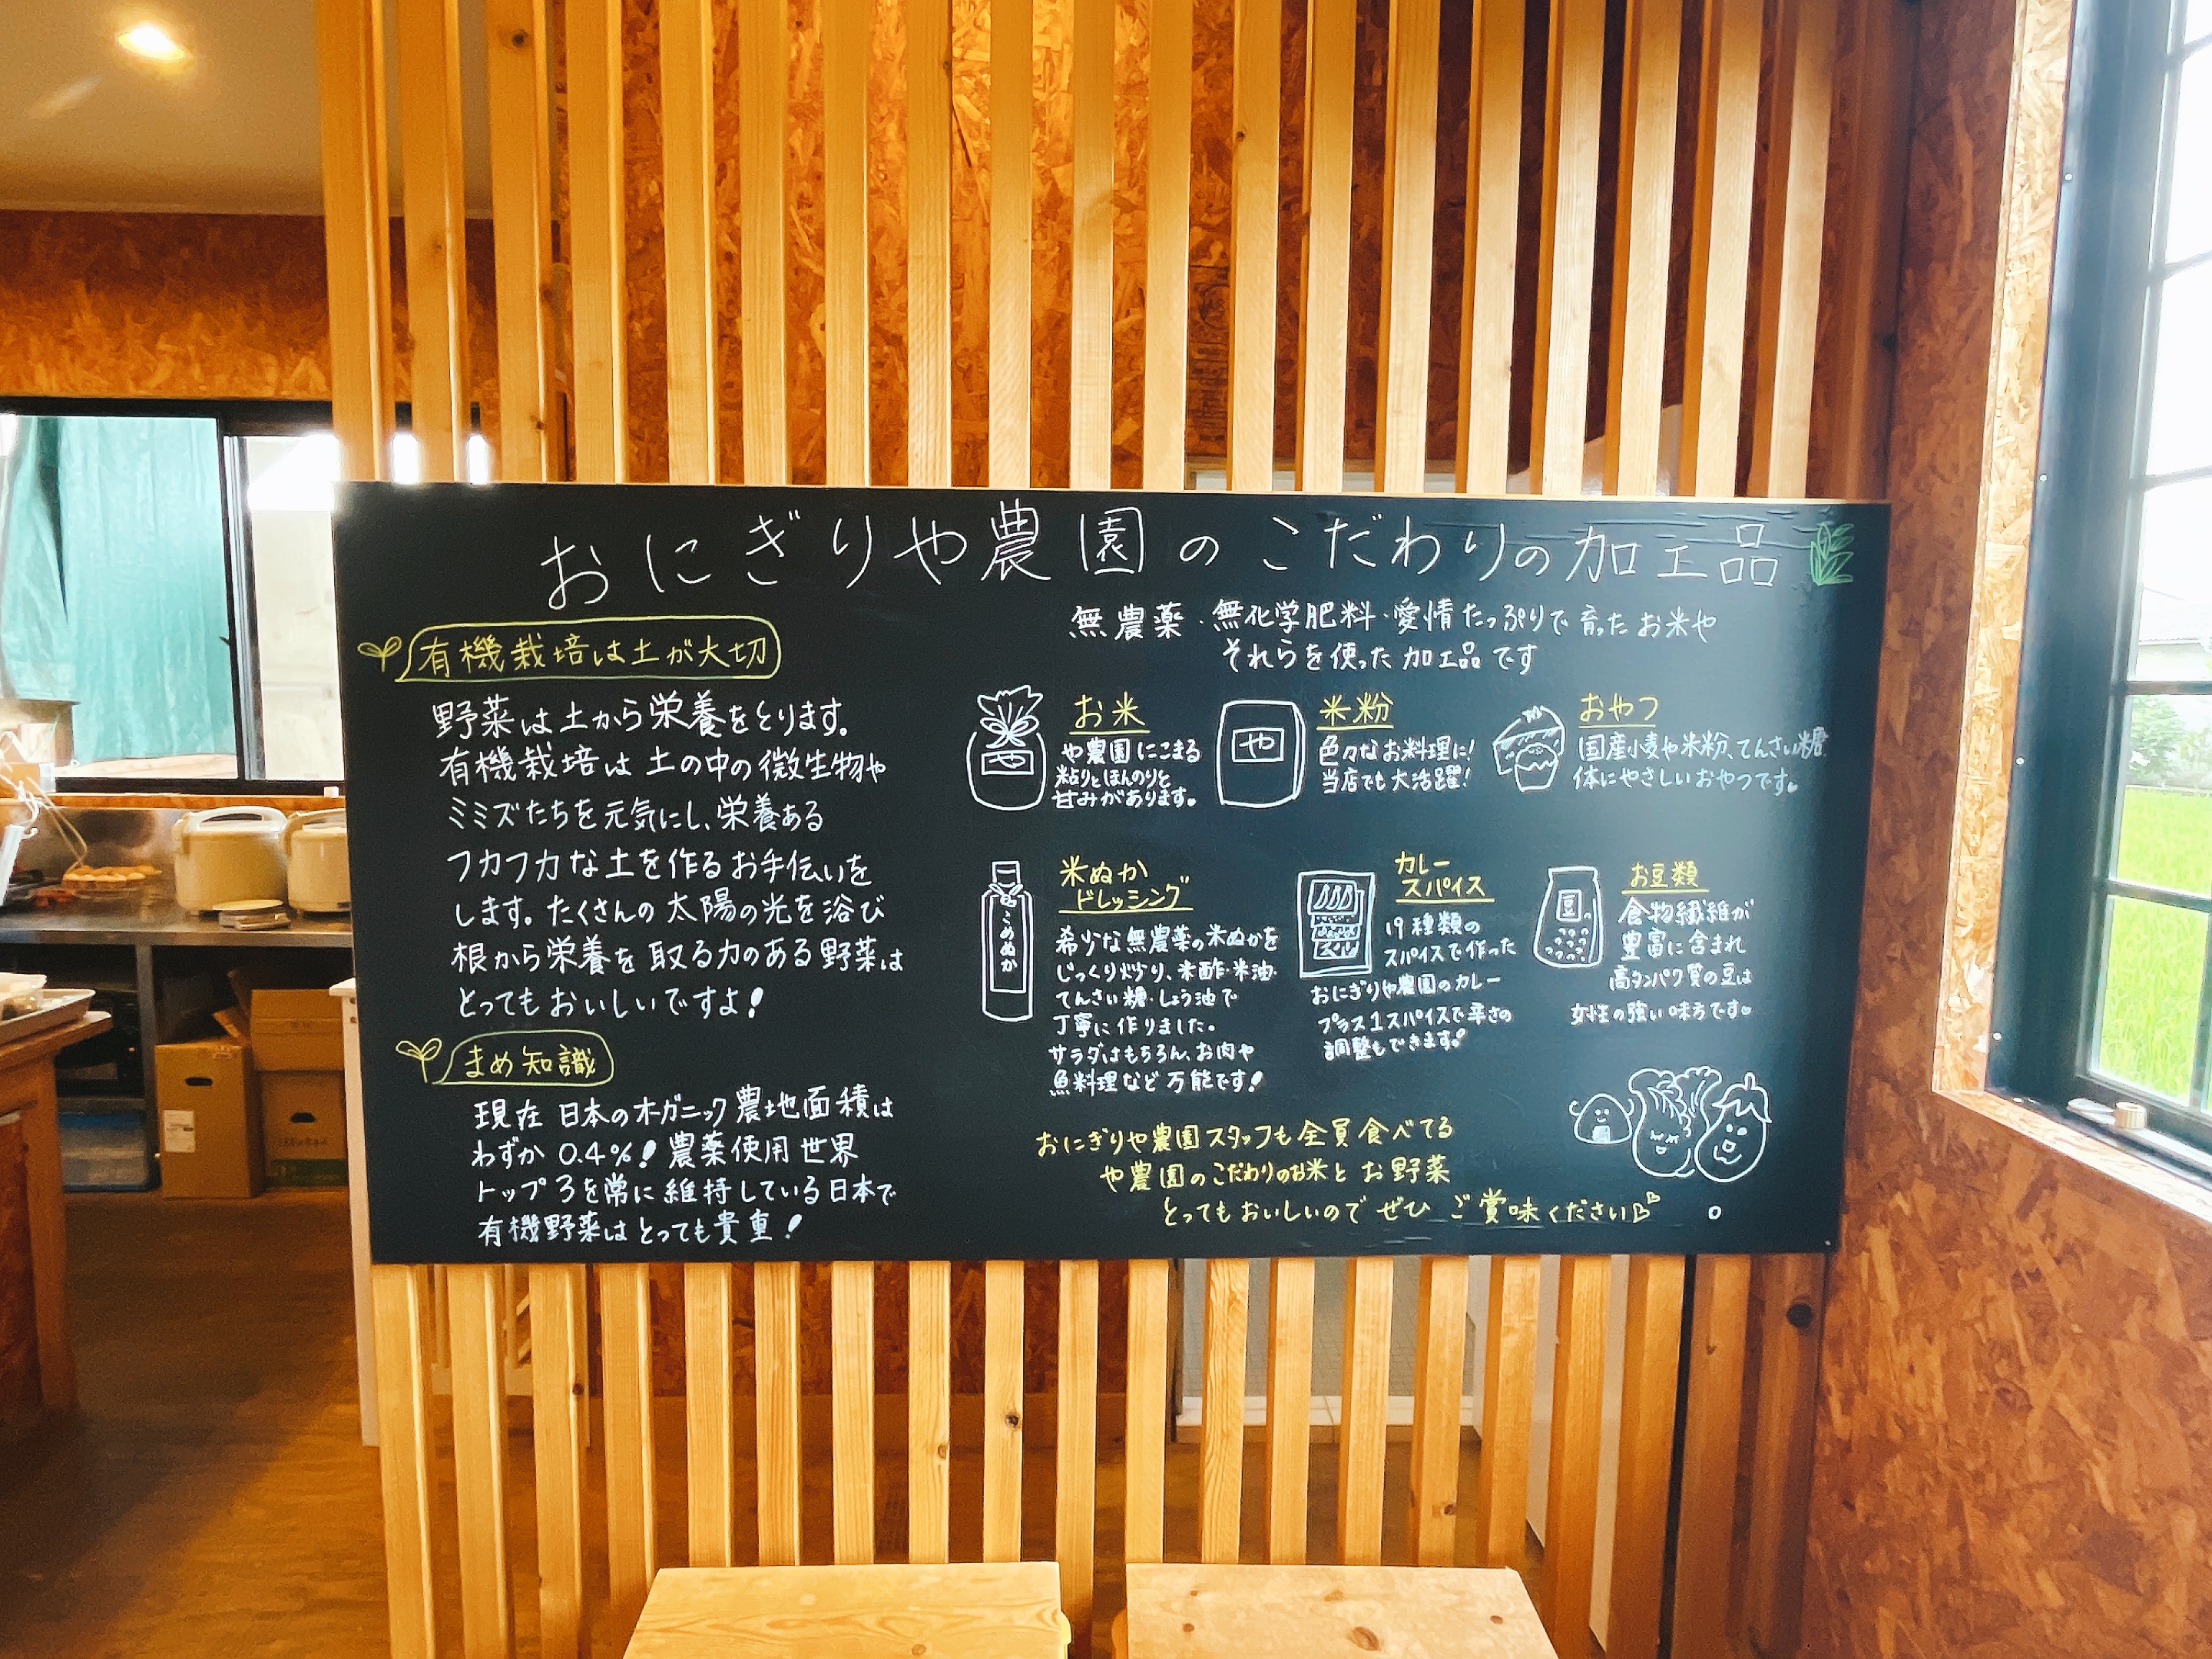 おにぎりや農園のこだわりの加工品
有機栽培は土が大切
野菜は土から栄養をとります。
有機栽培は土の中の微生物や
ミミズたちを元気にし、栄養ある
フカフカな土を作るお手伝いを
します。たくさんの太陽の光を浴び
根から栄養を取る力のある野菜は
とってもおいしいですよ!
まめ知識
現在 日本のオーガニック農地面積は
わずか0.4%!農薬使用世界
トップ3を常に維持している日本で
有機野菜はとっても貴重!
無農薬・無化学肥料・愛情たっぷりで育ったお米や
それらを使った加工品です
や
お米
や農園にこまる
粘りとほんのりと
甘みがあります。
や
米粉
色々なお料理に!
当店でも大活躍!
おやつ
国産小麦や米粉、てんさい糖
体にやさしいおやつです。
こめぬか
米ぬか
ドレッシング
希少な無農薬の米ぬかを
じっくり炒り、米酢・米油・
てんさい糖・しょう油で
丁寧に作りました。
サラダはもちろん、お肉や
魚料理など万能です!
カレー
スパイス
19種類の
スパイスで作った
おにぎりや農園のカレー
プラス1スパイスで辛さの
調整もできます!
豆
お豆類
食物繊維が
豊富に含まれ
高タンパク質の豆は
女性の強い味方です。
おにぎりや農園スタッフも全員食べてる
や農園のこだわりのお米とお野菜
とってもおいしいのでぜひ ご賞味ください